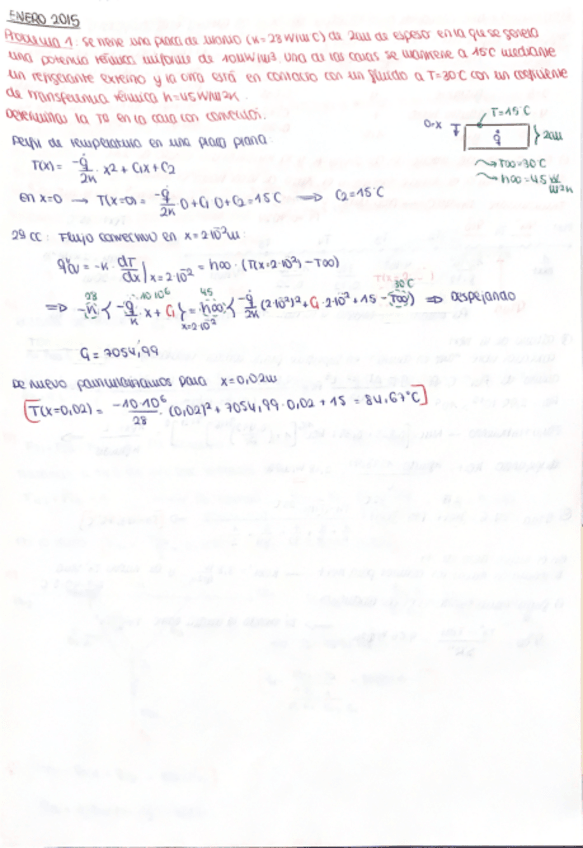 ENERO 2015
Problema 1: Se tiene una placa de uranio (K=28 W/m°C) de 2cm de espesor en la que se genera
una potencia térmica uniforme de 10MW/m3. Una de las caras se mantiene a 15°C mediante
un refrigerante externo y la otra está en contacto con un fluido a T=30°C con un coeficiente
de transferencia térmica h=45W/m2K.
Determinar la Tª en la cara con convección.
Perfil de temperatura en una placa plana:
T=15°C
0→x q̇ } 2cm
T(x) = -q̇/2K · x2 + C1x + C2
T∞=30°C
h∞=45 W/m2K
en x=0 → T(x=0) = -q̇/2K 0 + C1 0 + C2 = 15°C ⟹ C2=15°C
2ª CC: Flujo convectivo en x=2·10-2m:
= -K · dT/dx | x=2·10-2 = h∞ · (T(x=2·10-2) - T∞)
28 10·106 45 30°C
⟹ -K { -q̇/K · x + C1 } x=2·10-2 = h∞ { -q̇/2K (2·10-2)2 + C1·2·10-2 + 15 - T∞ } ⟹ Despejando
C1 = 7054,99
De nuevo particularizamos para x=0,02m
T(x=0,02) = -10·106/28 · (0,02)2 + 7054,99·0,02 + 15 = 84,67°C